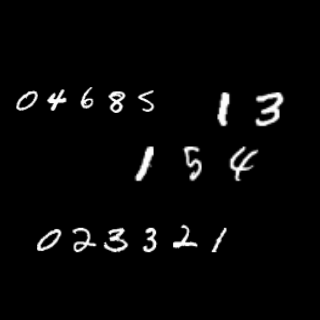 04685
13
154
023321